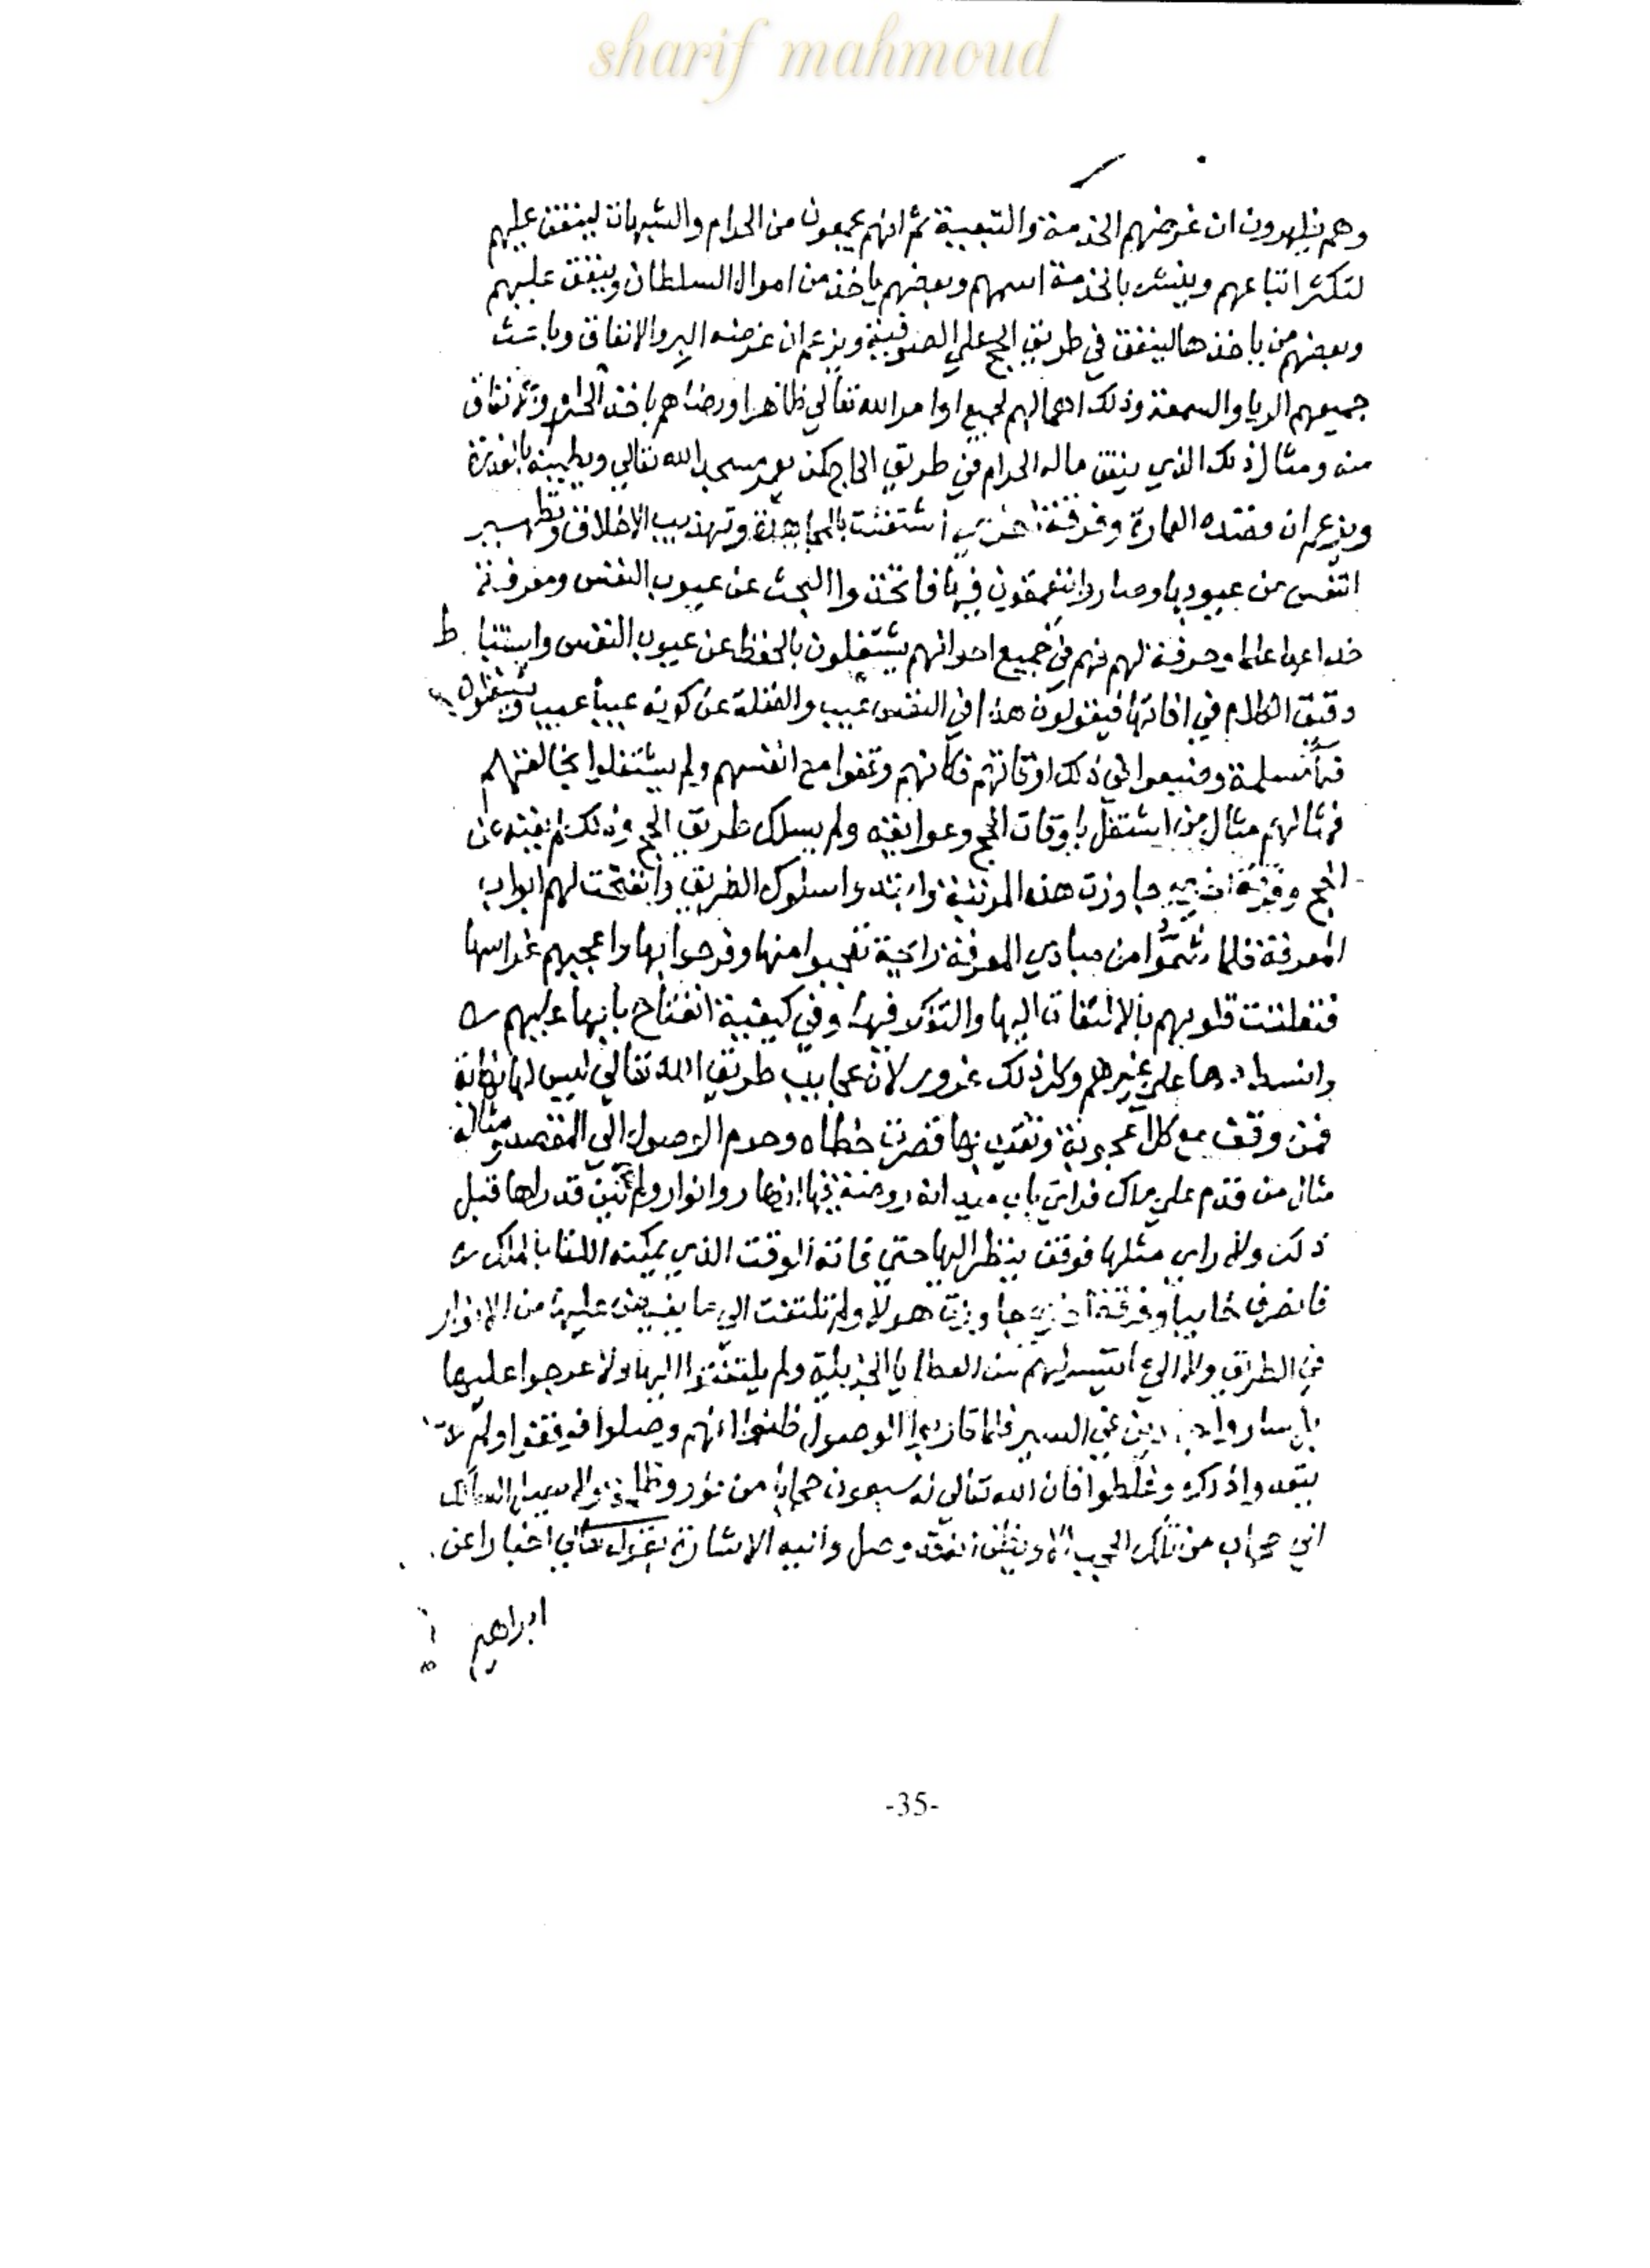 sharif mahmoud
وهم يظهرون ان غرضهم الخدمة والتبعية ثم انهم يجمعون من الحرام والشبهات لينفق عليهم
لتكثر اتباعهم وينشر بالخدمة اسمهم وبعضهم ياخذ من اموال السلطان وينفق عليهم
وبعضهم من ياخذها لينفق في طريق الحج علي الصوفية ويزعم ان غرضه البر والانفاق وباعث
جميعهم الريا والسمعة وذلك اهمالهم لجميع اوامر الله تعالي ظاهرا ورضاهم باخذ الحرام والانفاق
منه ومثال ذلك الذي ينفق ماله الحرام في طريق الحاج كمن يعمر مسجد الله تعالي ويطينه بالعذرة
ويزعم ان قصده العمارة وفرقة اخري اشتغلت بالمجاهدة وتهذيب الاخلاق وتطهير
النفس من عيوبها وصاروا يتعمقون فيها فاتخذوا البحث عن عيوب النفس ومعرفة
خداعها علما وحرفة لهم فهم في جميع احوالهم يشتغلون بالحفظ عن عيوب النفس واستنباط
دقيق الكلام في افاتها فيقولون هذا في النفس عيب والغفلة عن كونه عيبا عيب ويشتغلون
فيها مسلسلة وضيعوا في ذلك اوقاتهم فكانهم وقفوا مع انفسهم ولم يشتغلوا بخالقهم
فمثالهم مثال من اشتغل باوقات الحج وعوايقه ولم يسلك طريق الحج وذلك لم يغنه عن
الحج وفرقة اخري جاوزت هذه المرتبة وابتدءوا سلوك الطريق وانفتحت لهم ابواب
المعرفة فلما تشمموا من مبادي المعرفة رائحة تعجبوا منها وفرحوا بها واعجبهم غرائبها
فتعلقت قلوبهم بالالتفات اليها والتفكر فيها وفي كيفية انفتاح بابها عليهم
وانسدادها علي غيرهم وكل ذلك غرور لان عجايب طريق الله تعالي ليس لها نهاية
فمن وقف مع كل اعجوبة وتقيد بها قصرت خطاه وحرم الوصول الي المقصد ومثاله
مثال من قدم علي ملك فراي باب ميدانه روضة فيها ازهار وانوار ولم يكن قد راها قبل
ذلك ولا راي مثلها فوقف ينظر اليها حتي فاته الوقت الذي يمكنه اللقا بالملك
فانصرف خايبا وفرقة اخري جاوزت هولا ولم تلتفت الي ما يفيض عليها من الانوار
في الطريق ولا الي ما تيسر لهم من العطايا الجزيلة ولم يلتفتوا اليها ولا عرجوا عليها
بل ساروا جادين في السير فلما قاربوا الوصول ظنوا انهم وصلوا فوقفوا ولم
يتعدوا ذلك وغلطوا فان الله تعالي له سبعون حجابا من نور وظلمة ولا يصل السالك
الي حجاب من تلك الحجب الا ويظن انه قد وصل واليه الاشارة بقوله تعالي اخبارا عن
ابراهيم
-35-